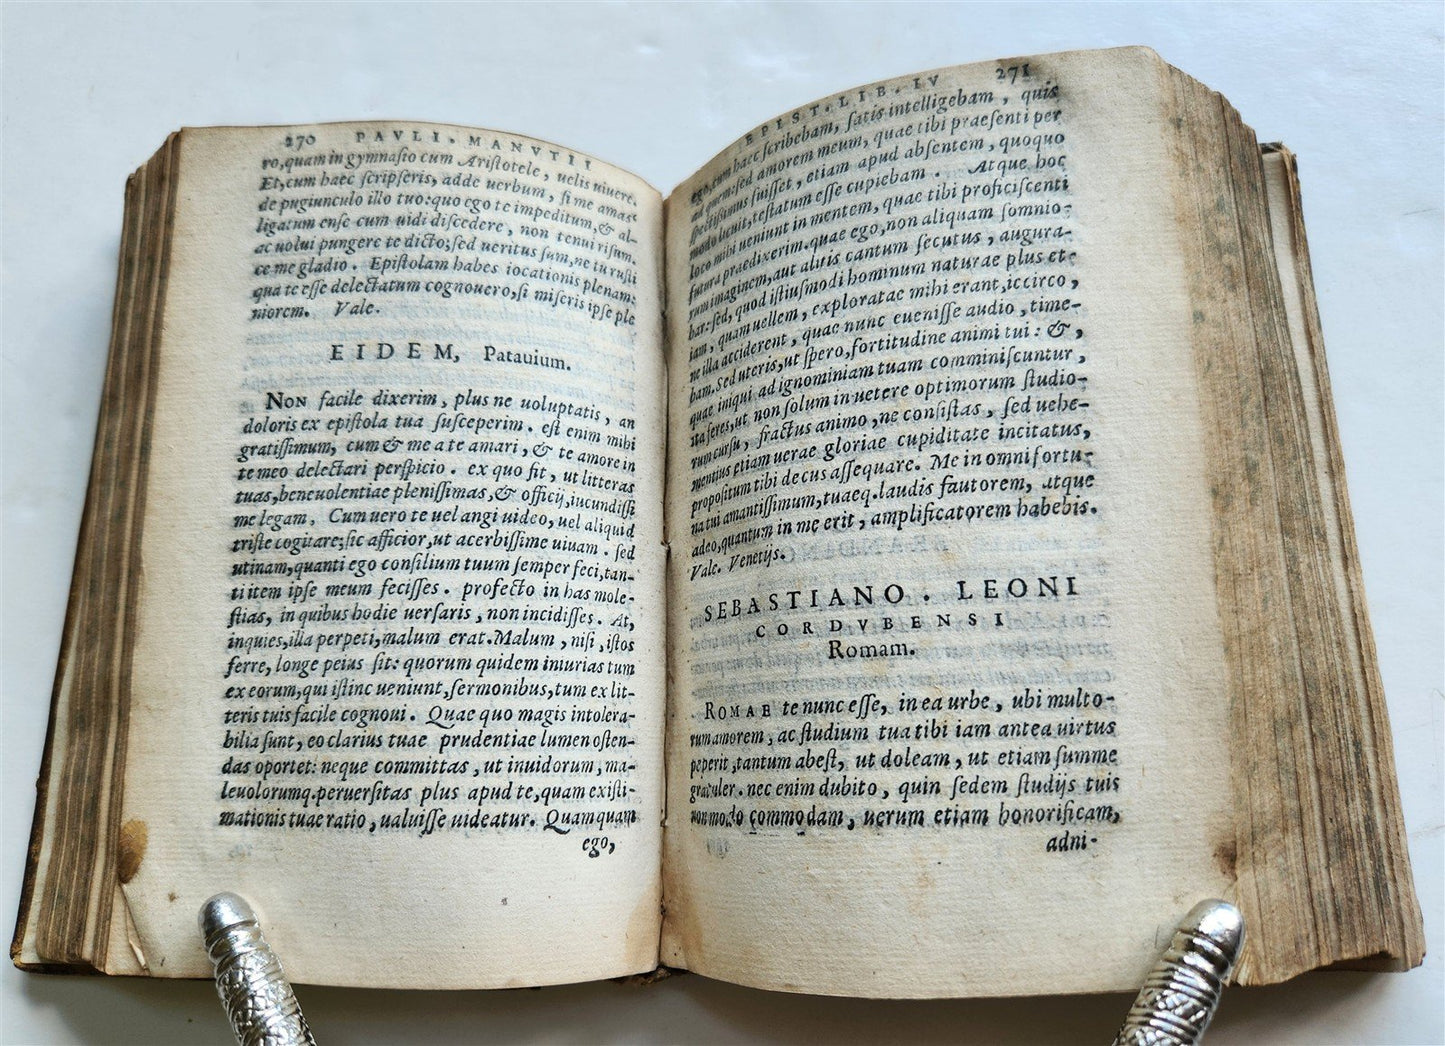 270 PAVLI. MANVTII
ro, quam in gymnasio cum Aristotele, uelis uiuere.
Et, cum haec scripseris, adde uerbum, si me amas,
de pugiunculo illo tuo: quo ego te impeditum, & al-
ligatum ense cum uidi discedere, non tenui risum.
ac uolui pungere te dicto; sed ueritus sum, ne tu rusti
ce me gladio. Epistolam habes iocationis plenam:
qua te esse delectatum cognouero, si miseris ipse ple
niorem. Vale.
EIDEM, Patauium.
NON facile dixerim, plus ne uoluptatis, an
doloris ex epistola tua susceperim. est enim mihi
gratissimum, cum & me a te amari, & te amore in
te meo delectari perspicio. ex quo fit, ut litteras
tuas, beneuolentiae plenissimas, & officij, iucundissi
me legam. Cum uero te uel angi uideo, uel aliquid
triste cogitare; sic afficior, ut acerbissime uiuam. sed
utinam, quanti ego consilium tuum semper feci, tan-
ti item ipse meum fecisses. profecto in has mole-
stias, in quibus hodie uersaris, non incidisses. At,
inquies, illa perpeti, malum erat. Malum, nisi, istos
ferre, longe peius sit: quorum quidem iniurias tum
ex eorum, qui istinc ueniunt, sermonibus, tum ex lit-
teris tuis facile cognoui. Quae quo magis intolera-
bilia sunt, eo clarius tuae prudentiae lumen osten-
das oportet: neque committas, ut inuidorum, ma-
leuolorumq. peruersitas plus apud te, quam existi-
mationis tuae ratio, ualuisse uideatur. Quamquam
ego,
EPIST. LIB. IV 271
ego, cum haec scribebam, satis intelligebam, quis
ad quem: sed amorem meum, quae tibi praesenti per
spectissimus fuisset, etiam apud absentem, quoquo
modo licuit, testatum esse cupiebam. Atque hoc
loco mihi ueniunt in mentem, quae tibi proficiscenti
futura praedixerim. quae ego, non aliquam somnio-
rum imaginem, aut alitis cantum secutus, augura-
bar: sed, quod istiusmodi hominum naturae plus etc
iam, quam uellem, exploratae mihi erant, iccirco,
ne illa acciderent, quae nunc euenisse audio, time-
bam. Sed uteris, ut spero, fortitudine animi tui: &,
quae iniqui ad ignominiam tuam comminiscuntur,
ita feres, ut non solum in uetere optimorum studio-
rum cursu, fractus animo, ne consistas, sed uehe-
mentius etiam uerae gloriae cupiditate incitatus,
propositum tibi decus assequare. Me in omni fortu-
na tui amantissimum, tuaeq. laudis fautorem, atque
adeo, quantum in me erit, amplificatorem habebis.
Vale. Venetijs.
SEBASTIANO. LEONI
CORDVBENSI
Romam.
ROMAE te nunc esse, in ea urbe, ubi multo-
rum amorem, ac studium tua tibi iam antea uirtus
peperit, tantum abest, ut doleam, ut etiam summe
gratuler. nec enim dubito, quin sedem studijs tuis
non modo commodam, uerum etiam honorificam,
adni-